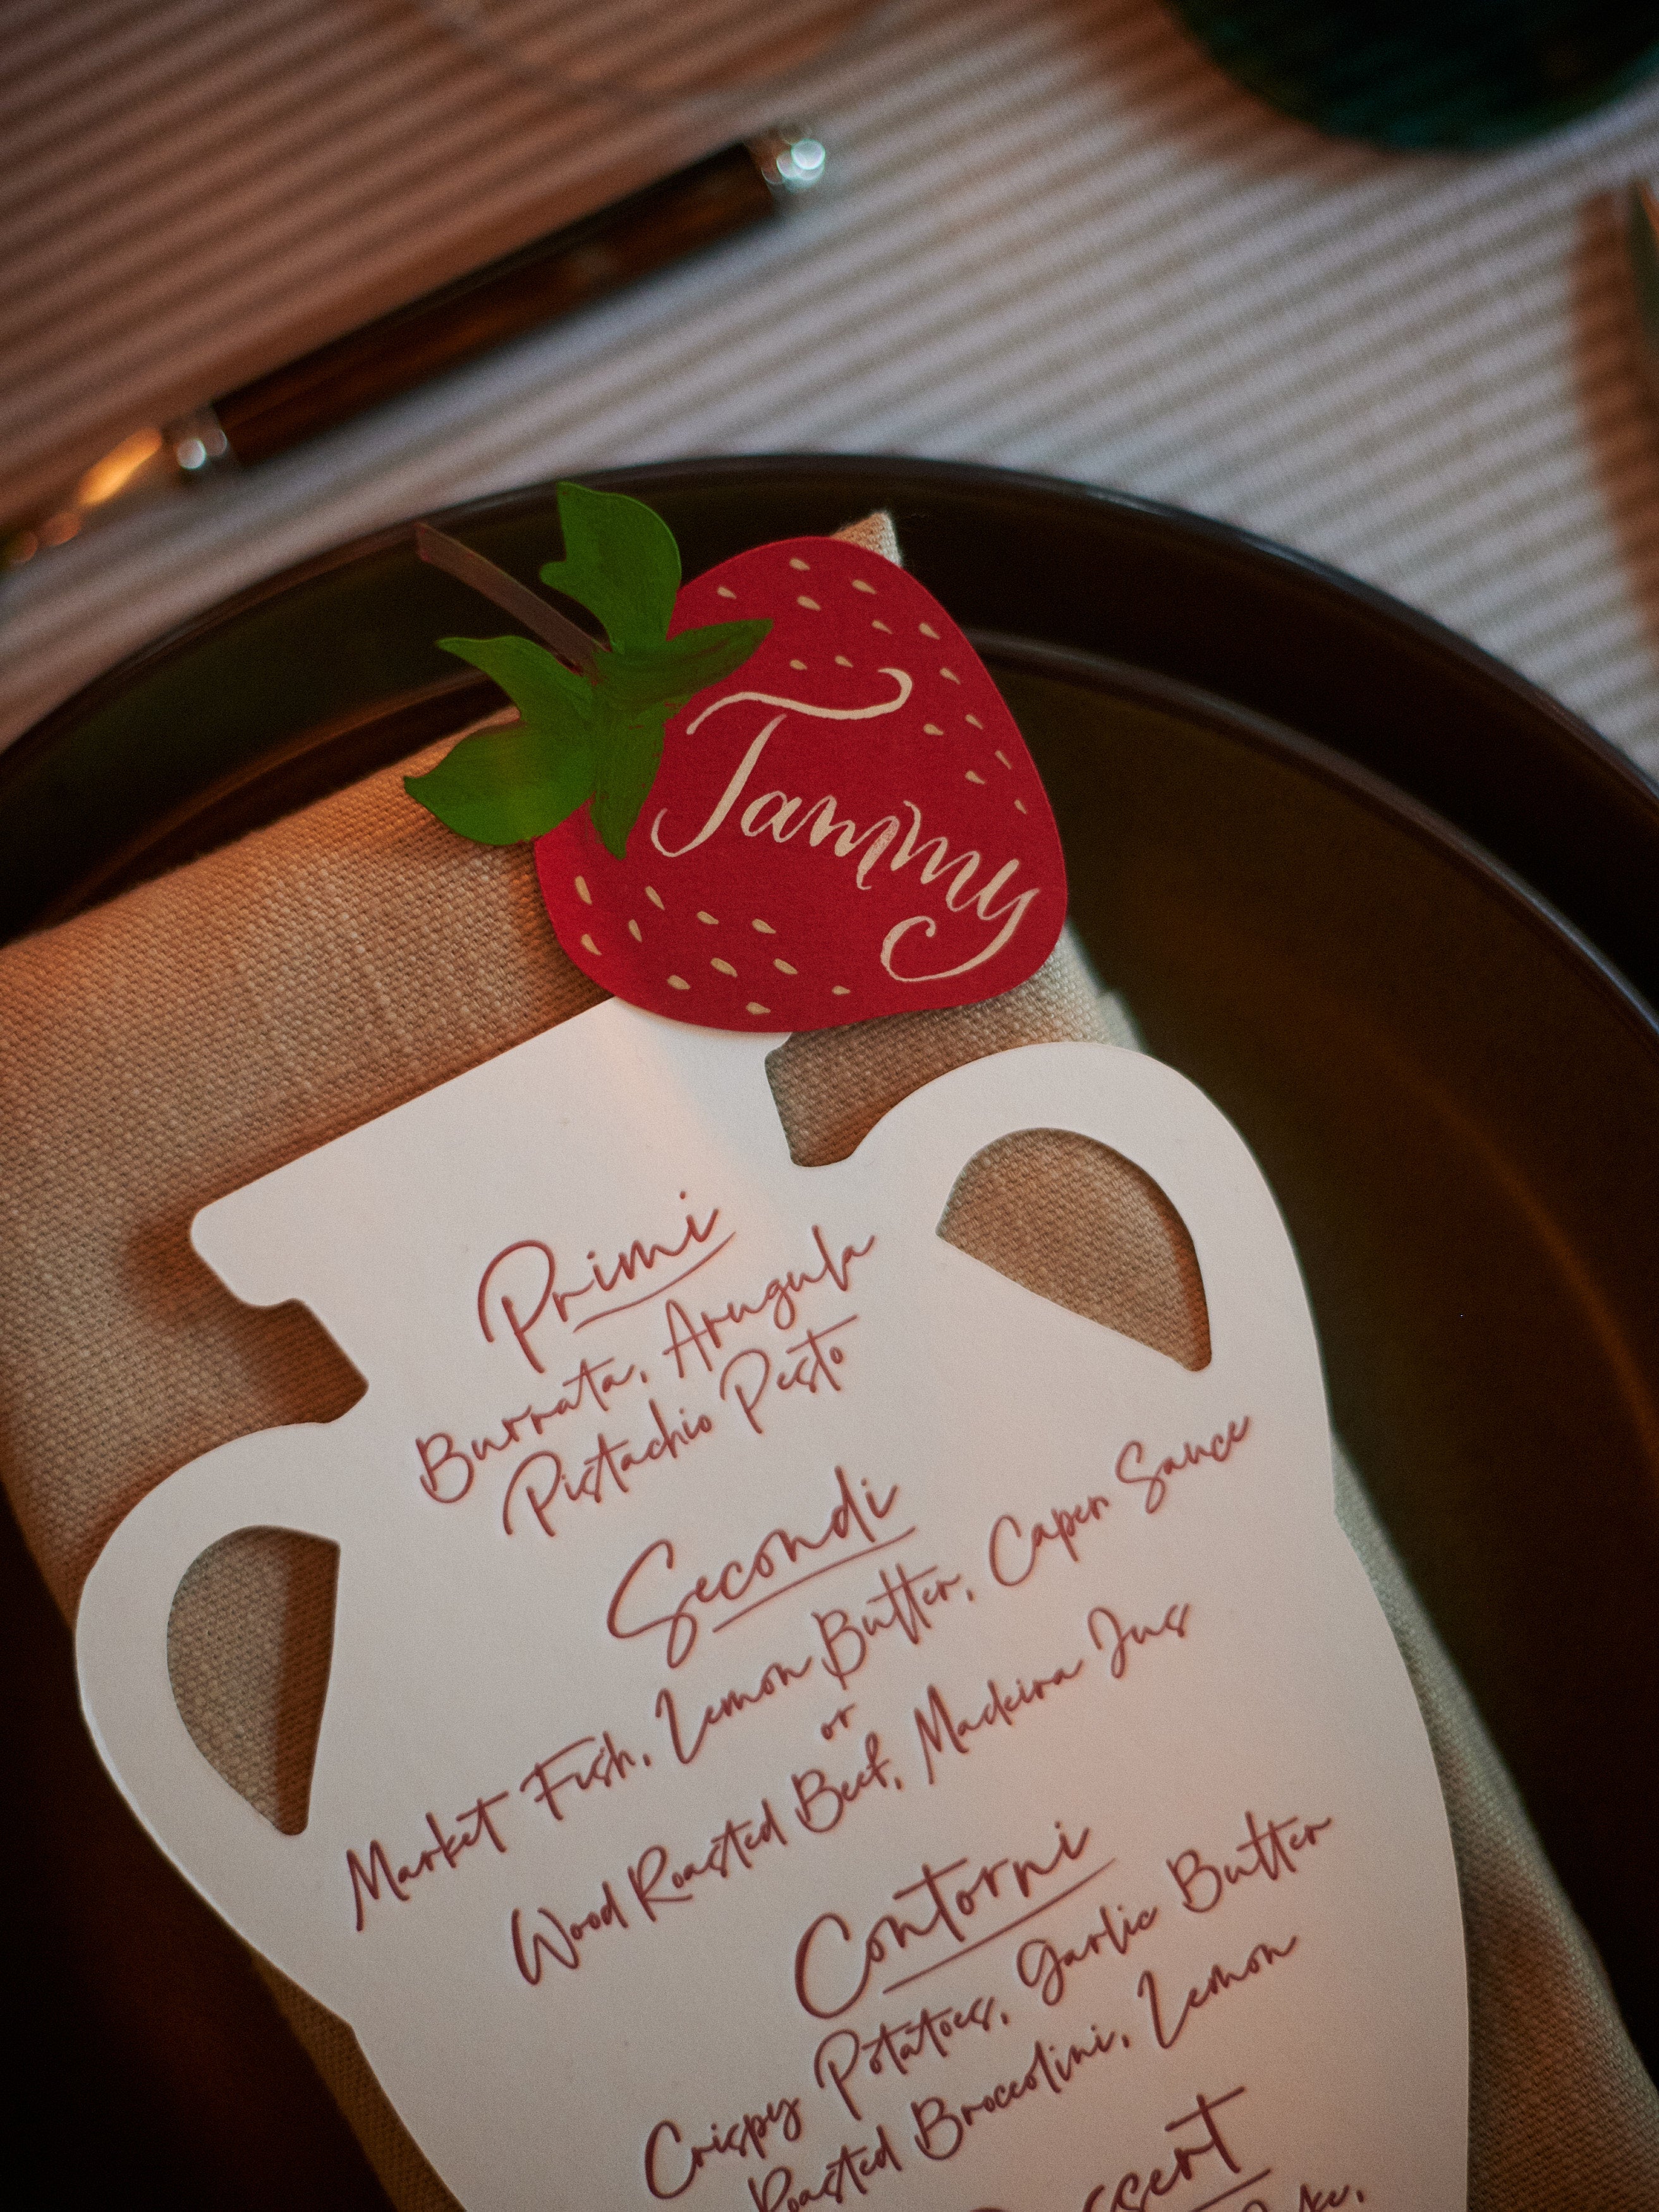 Tammy
Primi
Burrata, Arugula
Pistachio Pesto
Secondi
Market Fish, Lemon Butter, Caper Sauce
or
Wood Roasted Beef, Madeira Jus
Contorni
Crispy Potatoes, Garlic Butter
Roasted Broccolini, Lemon